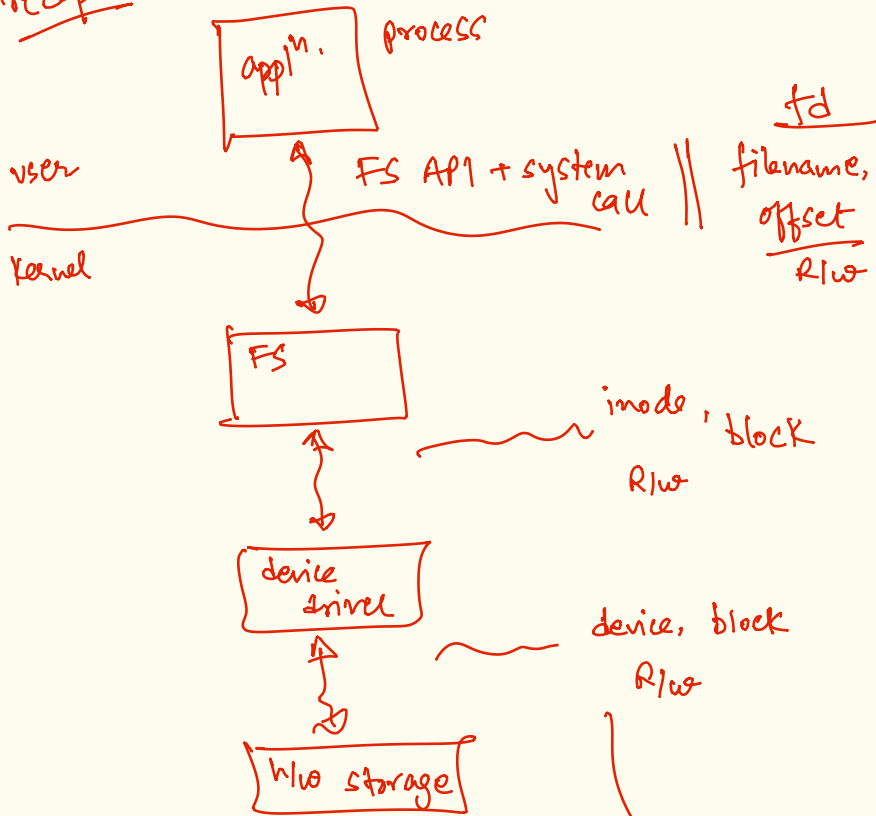 process
applⁿ.
fd
user
FS API + system
call
filename,
offset
Kernel
R/w
FS
inode, block
R/w
device
driver
device, block
R/w
h/w storage